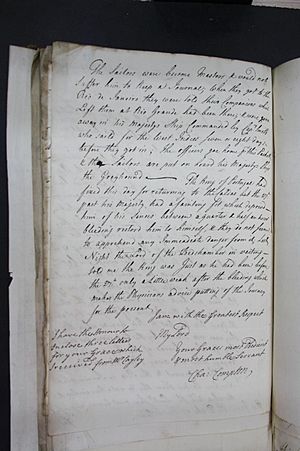 The Sailors were become Masters & would not
suffer him to keep a Journal; when they got to the
Rio de Janeiro they were told their Companions who
left them at Rio Grande had been there, & were gone
away in his Majestys Ship Commanded by Capt
who sail'd for the West Indies seven or eight days
before they got in; the officers are home
& the Sailors are put on board his Majestys Ship
the Greyhound The King of Portugal had
fixed this day for returning to the but the
past his Majesty had a fainting fit which deprived
him of his Senses between a quarter & half an hour
bleeding restor'd him to himself, & they do not seem
to apprehend any Immediate danger from it, last
Night the Lord of the Bedchamber in waiting
told me the King was Just as he had been before
the only a little weak after the bleeding which
makes the Physicians advise putting off the Journey
for the present.
I am with the Greatest respect
My Lord
Your Graces most Obedient
& most humble Servant
Cha: Compton,
I have the Honour to
enclose three letters
for your Grace which
I receiv'd from Mr Cayley